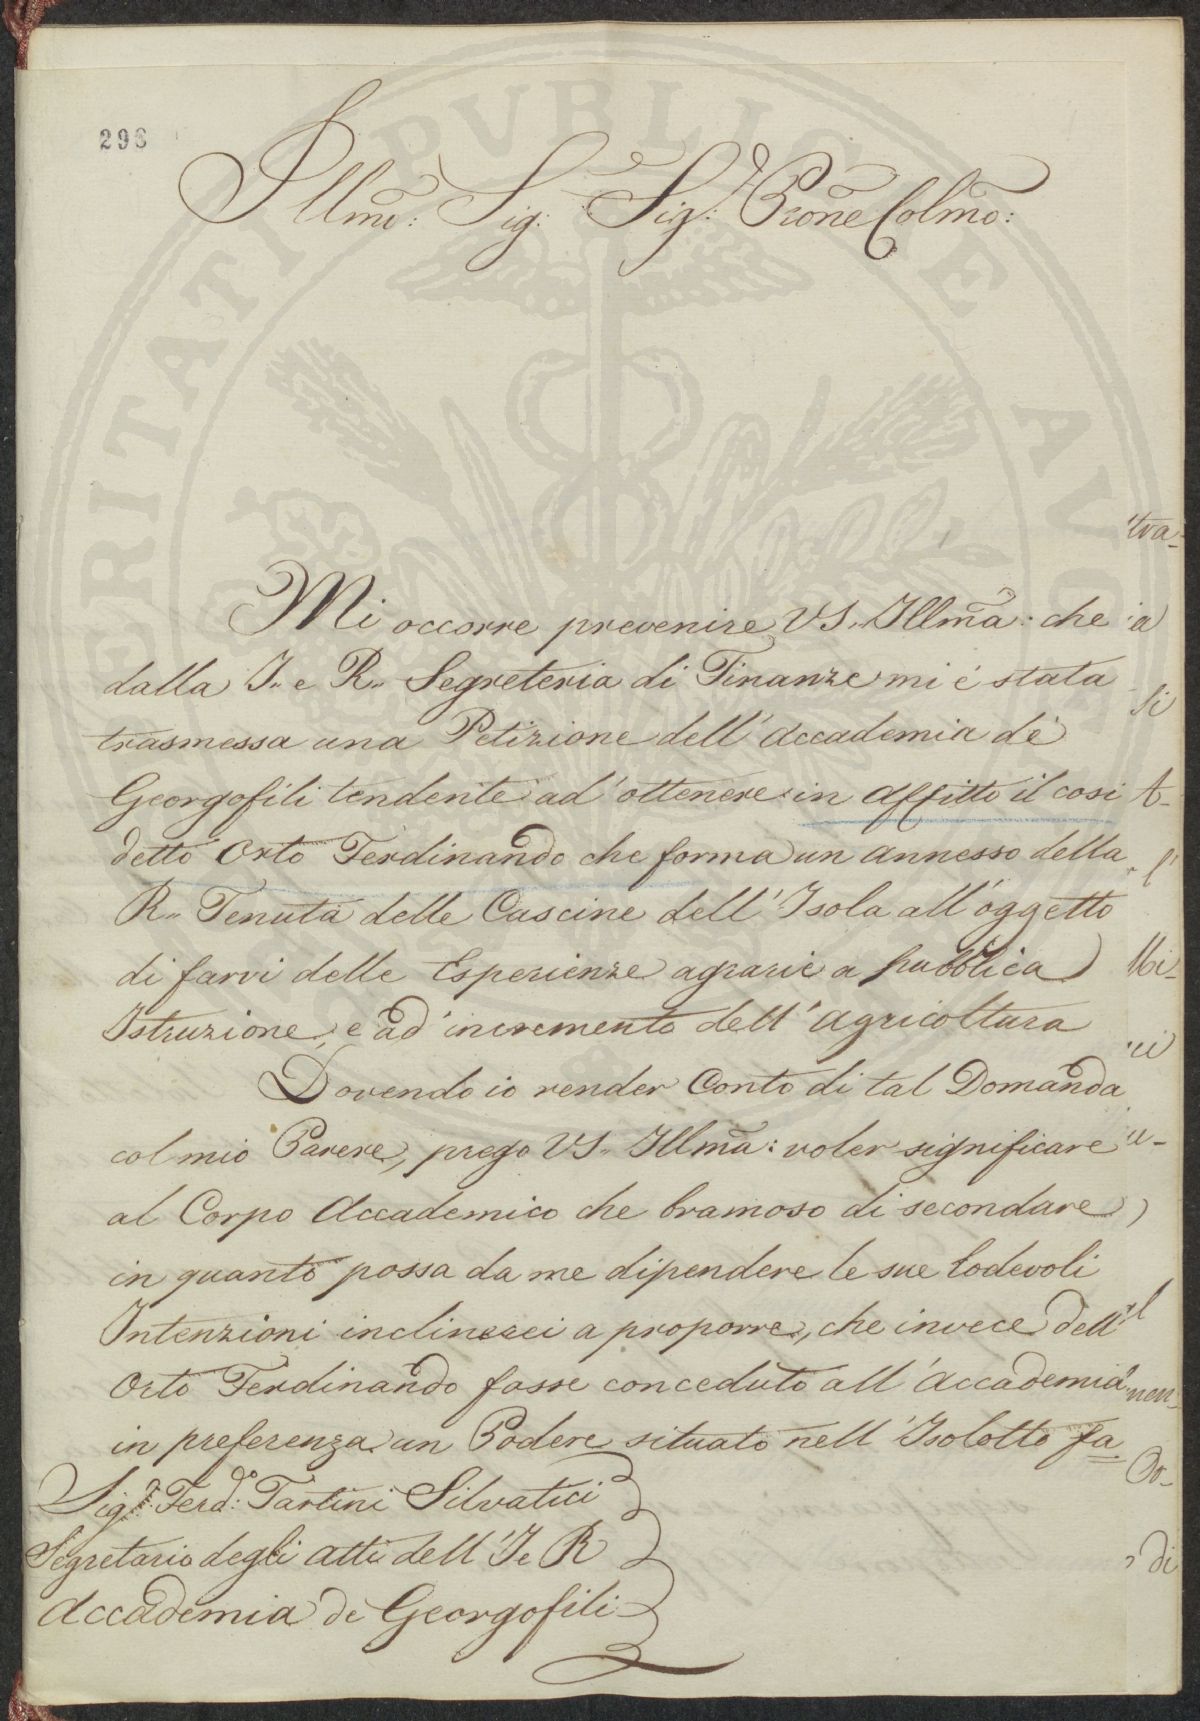 293
Illmo: Sig: Sig:r Prone Colmo:
Mi occorre prevenire VS. Illma: che
dalla I. e R. Segreteria di Finanze mi é stata
trasmessa una Petizione dell'Accademia de'
Georgofili tendente ad ottenere in affitto il cosi
detto Orto Ferdinando che forma un annesso della
R. Tenuta delle Cascine dell'Isola all'oggetto
di farvi delle Esperienze agrarie a pubblica
Istruzione, e ad incremento dell'agricoltura
Dovendo io render Conto di tal Domanda
col mio Parere, prego VS. Illma: voler significare
al Corpo Accademico che bramoso di secondare
in quanto possa da me dipendere le sue lodevoli
Intenzioni inclinerei a proporre, che invece dell'
Orto Ferdinando fosse conceduto all'Accademia
in preferenza un Podere situato nell'Isolotto fa=
Sig:r Ferd:o Tartini Silvatici
Segretario degli atti dell'I e R
Accademia de Georgofili
tra-
a
si
A-
l'
Mi-
ui
u-
l
men-
Oo-
di
PVBLICAE